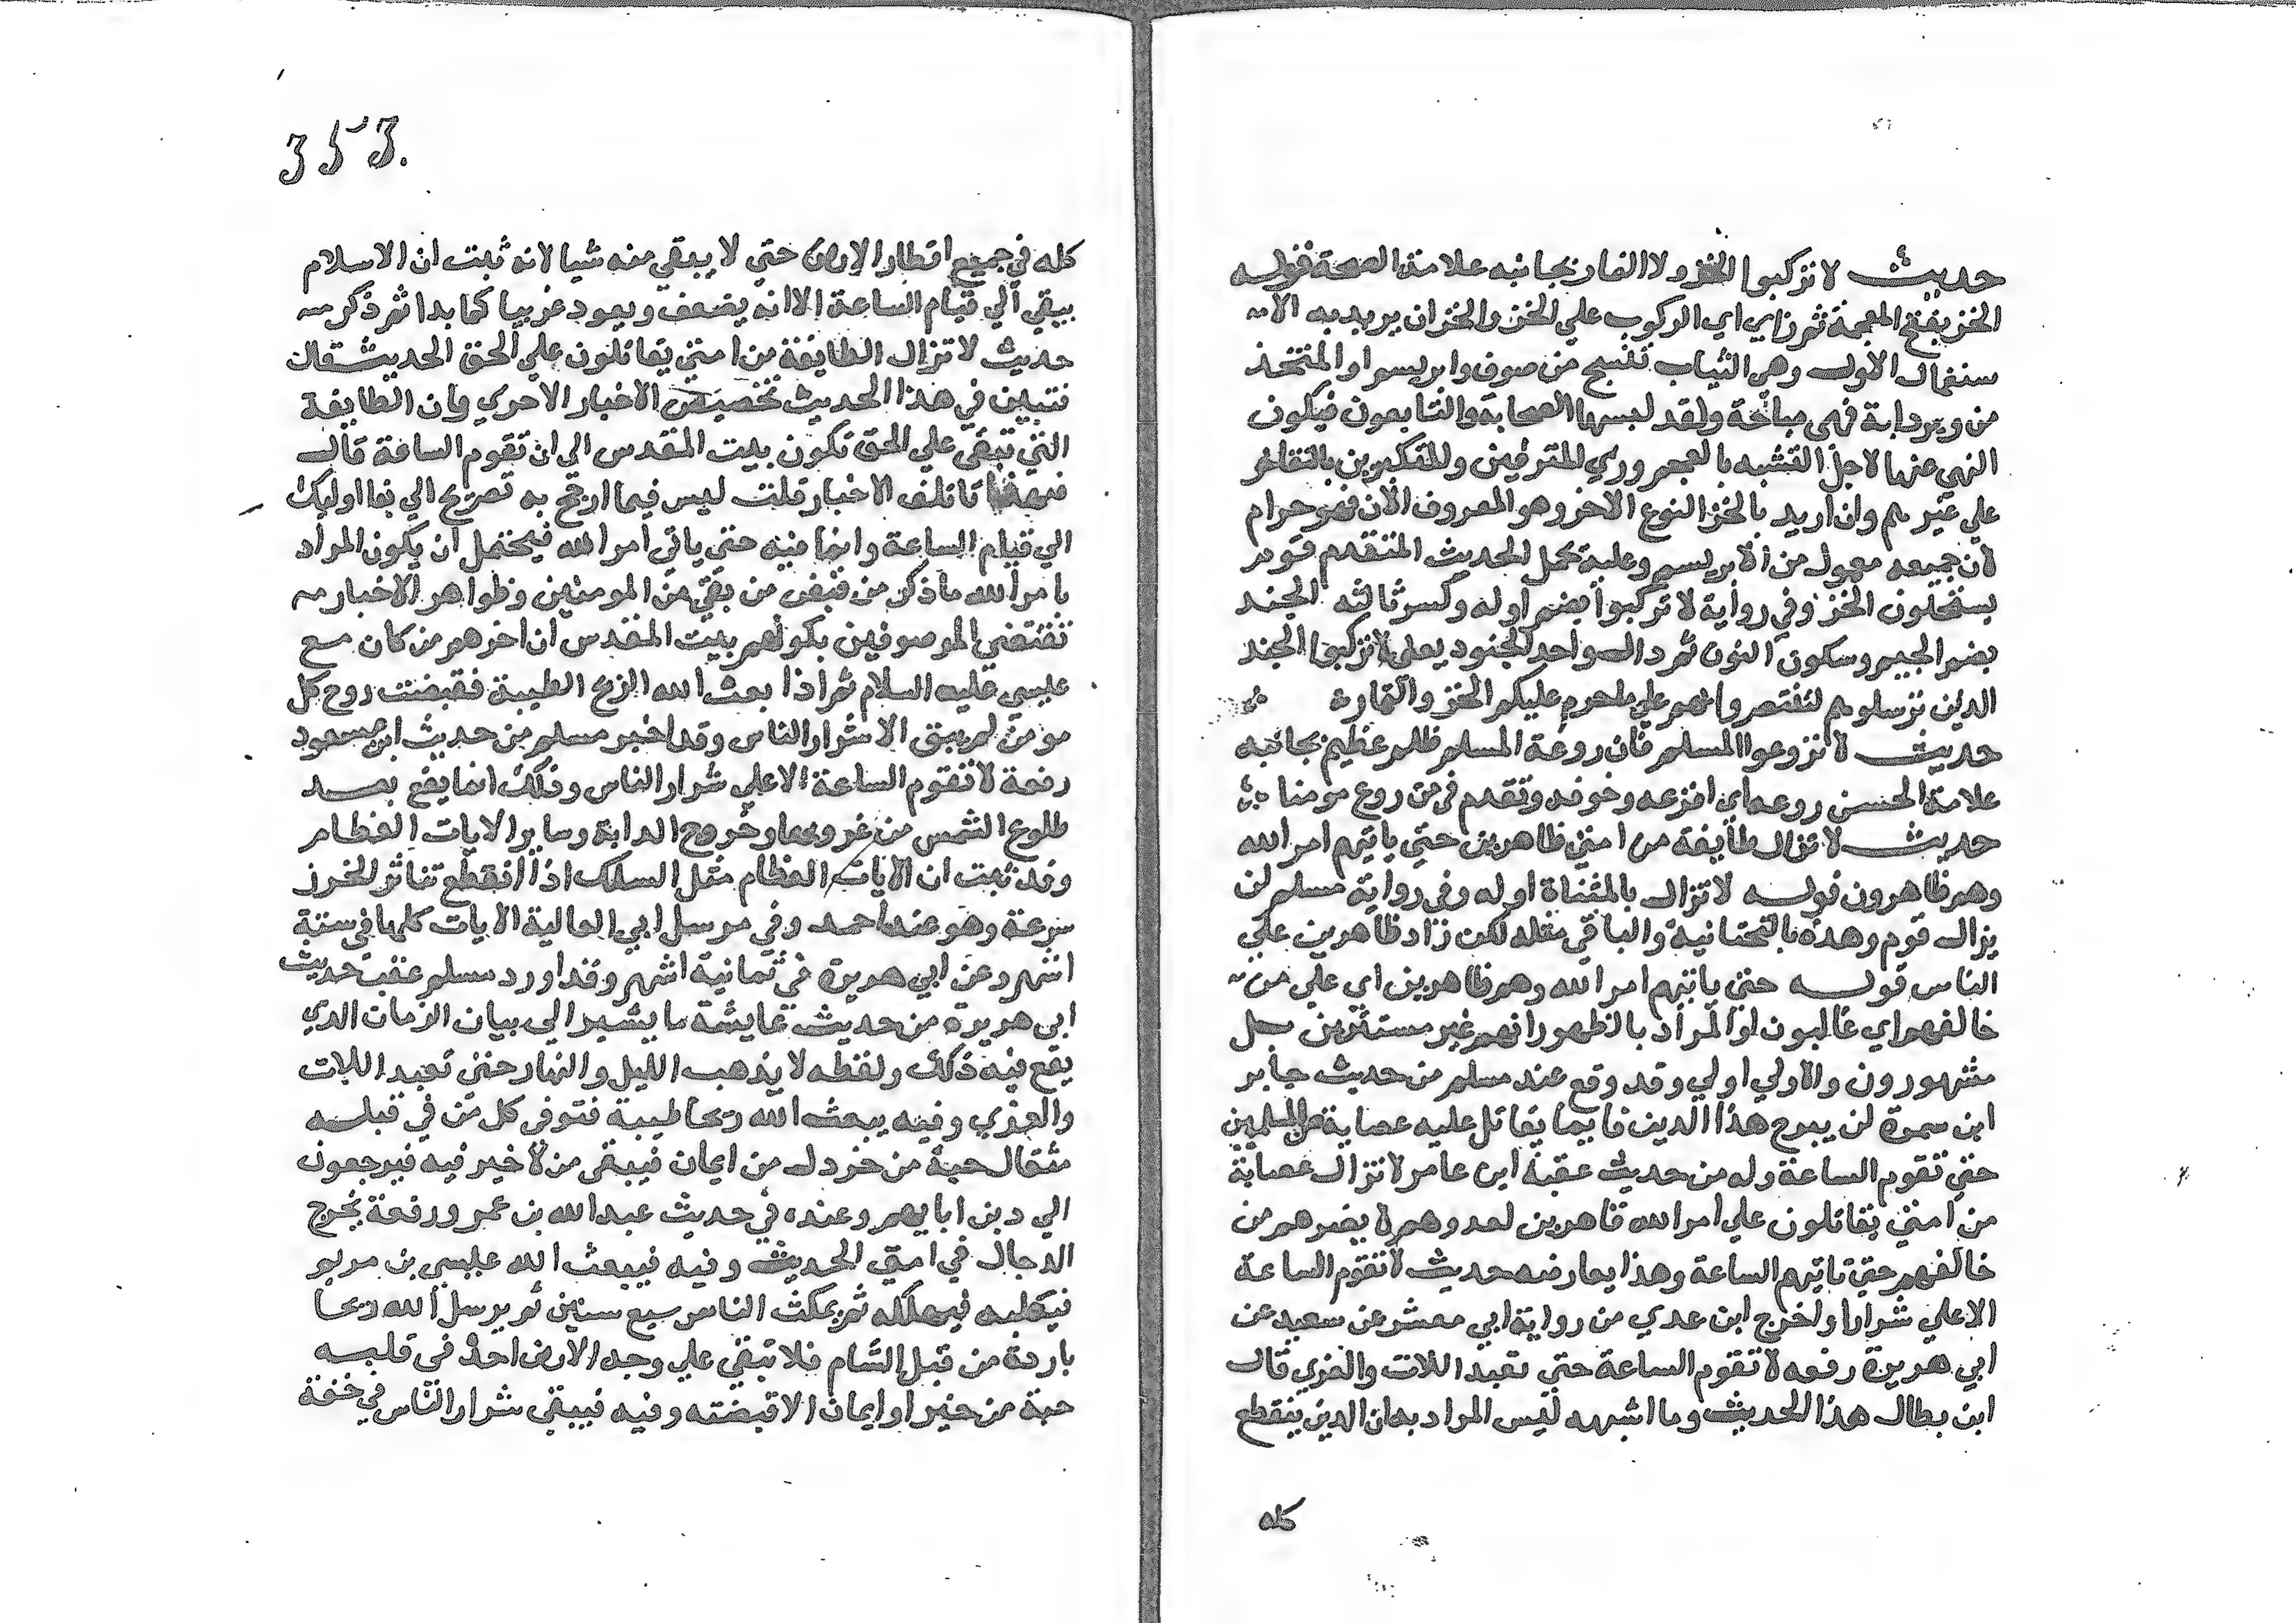 حديث لا تركبوا الخز ولا النمار بجانبه علامة الصحة قوله
الخز بفتح المعجمة ثم زاي اي الركوب علي الخز والخز ان يريد به الا
ستعمال الاول وهي الثياب تنسج من صوف وابريسم او المتخذ
من وبر دابة فهي مباحة ولقد لبسها الصحابة والتابعون فيكون
النهي عنها لاجل التشبه بالعجم وزي المترفين والمتكبرين بالتفاخر
علي غيرهم وان اريد بالخز النوع الاخر وهو المعروف الان فهو حرام
لان جميعه معمول من الابريسم وعليه يحمل الحديث المتقدم قوم
يستحلون الخز وفي رواية لا تركبوا بضم اوله وكسر ثالثه الجند
بضم الجيم وسكون النون ثم دال واحد الجنود يعني لا تركبوا الجند
الذين ترسلوهم لتنتصروا بهم علي ما حرم عليكم الخز والنمارة
حديث لا تروعوا المسلم فان روعة المسلم ظلم عظيم بجانبه
علامة الحسن روعه اي افزعه وخوفه وتقدم في من روع مومنا
حديث لا تزال طايفة من امتي ظاهرين حتي ياتيهم امر الله
وهم ظاهرون قوله لا تزال بالمثناة اوله وفي رواية مسلم لن
يزال قوم وهذه بالتحتانية والباقي مثله لكن زاد ظاهرين علي
الناس قوله حتي ياتيهم امر الله وهم ظاهرين اي علي من
خالفهم اي غالبون او المراد بالظهور انهم غير مستترين بل
مشهورون والاولي اولي وقد وقع عند مسلم من حديث جابر
ابن سمرة لن يبرح هذا الدين قايما يقاتل عليه عصابة من المسلمين
حتي تقوم الساعة وله من حديث عقبة ابن عامر لا تزال عصابة
من امتي يقاتلون علي امر الله قاهرين لعدوهم لا يضرهم من
خالفهم حتي تاتيهم الساعة وهذا يعارضه حديث لا تقوم الساعة
الا علي شرار واخرج ابن عدي من رواية ابي معشر عن سعيد عن
ابي هريرة رفعه لا تقوم الساعة حتي تعبد اللات والعزي قال
ابن بطال هذا الحديث وما اشبهه ليس المراد به ان الدين ينقطع
كله
353.
كله في جميع اقطار الارض حتي لا يبقي منه شيا لانه ثبت ان الاسلام
يبقي الي قيام الساعة الا انه يضعف ويعود غريبا كما بدا ثم ذكر
حديث لا تزال الطايفة من امتي يقاتلون علي الحق الحديث قال
فتبين في هذا الحديث تخصيص الاخبار الاخري وان الطايفة
التي تبقي علي الحق تكون ببيت المقدس الي ان تقوم الساعة قال
فبهذا تاتلف الاخبار قلت ليس فيما احتج به تصريح الي بقا اوليك
الي قيام الساعة وانما فيه حتي ياتي امر الله فيحتمل ان يكون المراد
بامر الله ما ذكر من قبض من بقي من المومنين وظواهر الاخبار
تقتضي الموصوفين بكونهم ببيت المقدس ان اخرهم من كان مع
عيسي عليه السلام ثم اذا بعث الله الريح الطيبة فقبضت روح كل
مومن لم يبق الا شرار الناس وقد اخبر مسلم من حديث ابن مسعود
رفعة لا تقوم الساعة الا علي شرار الناس وذلك انما يقع بعد
طلوع الشمس من غروبها وخروج الدابة وساير الايات العظام
وقد ثبت ان الايات العظام مثل السلك اذا انقطع تناثر الخرز
سرعة وهو عند احمد وفي مرسل ابي العالية الايات كلها في ستة
اشهر وعن ابي هريرة في ثمانية اشهر وقد اورد مسلم عقب حديث
ابي هريرة من حديث عايشة ما يشير الي بيان الزمان الذي
يقع فيه ذلك ولفظه لا يذهب الليل والنهار حتي تعبد اللات
والعزي وفيه يبعث الله ريحا طيبة فتوفي كل من في قبله
مثقال حبة من خردل من ايمان فيبقي من لا خير فيه فيرجعون
الي دين ابايهم وعنده في حديث عبد الله بن عمر ورفعة يخرج
الدجال في امتي الحديث وفيه فيبعث الله عيسي بن مريم
فيطلبه فيهلكه ثم يمكث الناس سبع سنين ثم يرسل الله ريحا
باردة من قبل الشام فلا تبقي علي وجه الارض احد في قلبه
حبة من خير او ايمان الا قبضته وفيه فيبقي شرار الناس في خفة